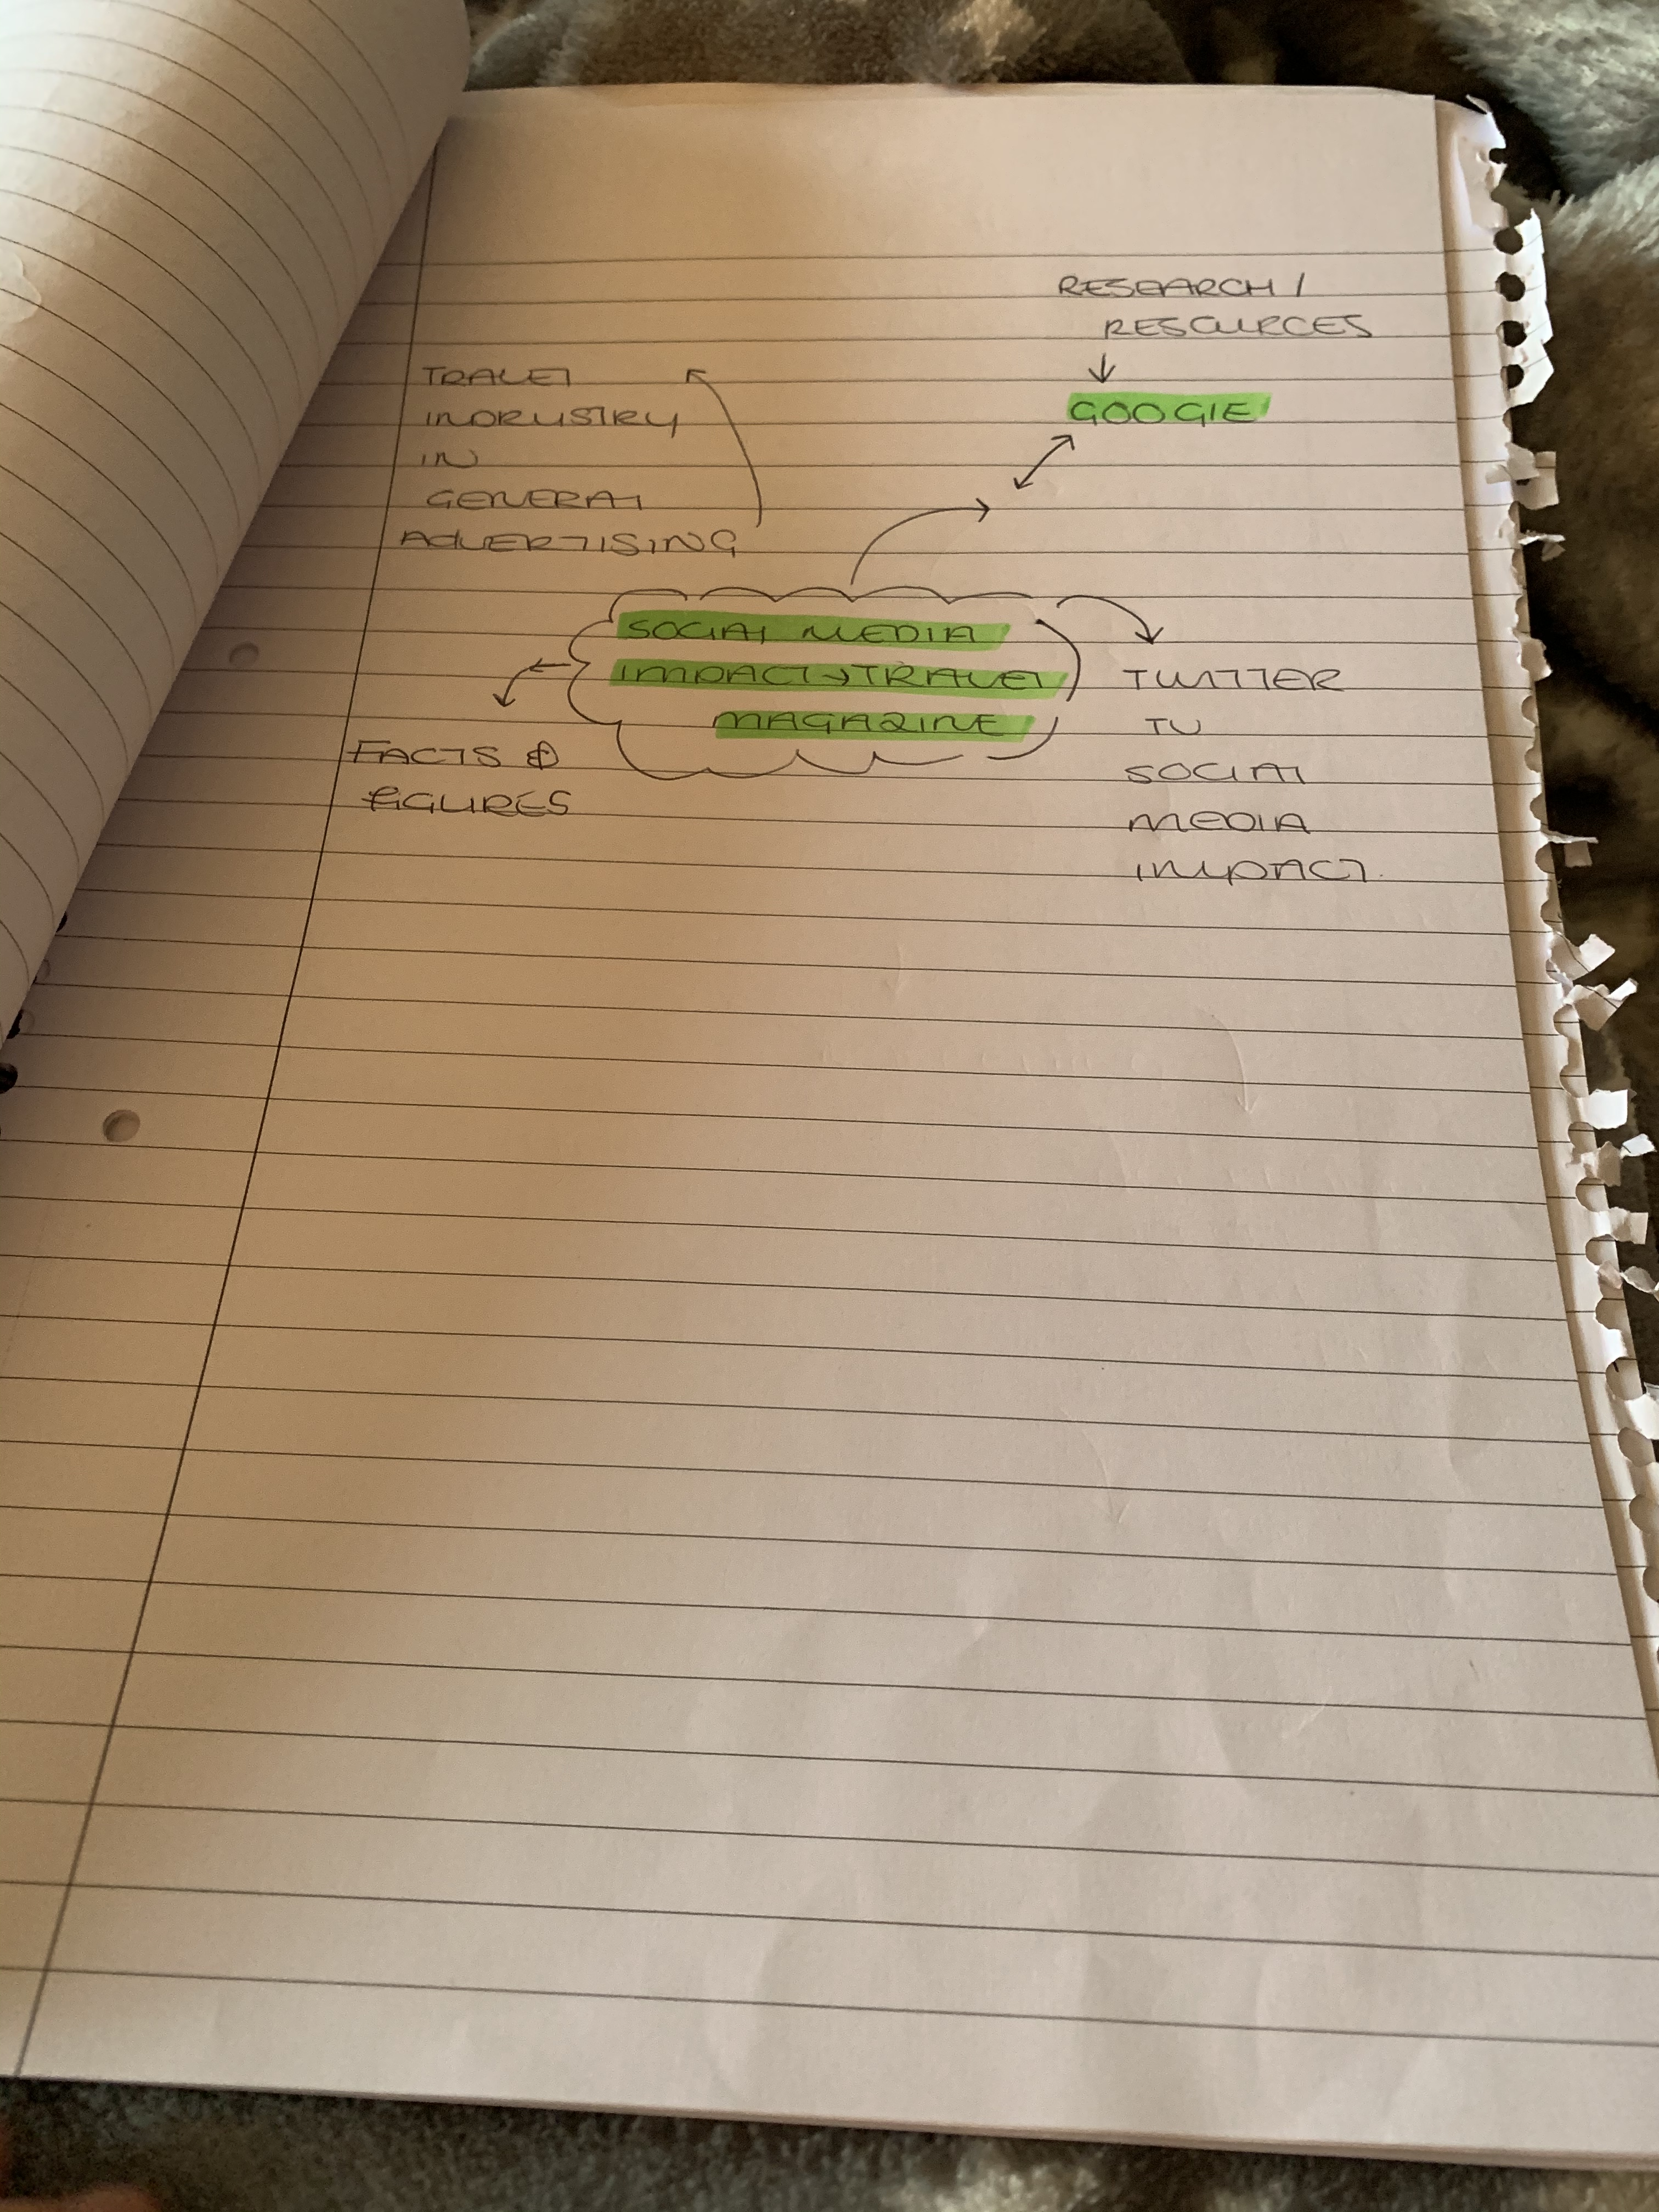 RESEARCH /
RESOURCES
↓
GOOGLE
TRAVEL
INDRUSTRY
IN
GENERAL
ADVERTISING
SOCIAL MEDIA
IMPACT → TRAVEL
MAGAZINE
TWITTER
TV
SOCIAL
MEDIA
IMPACT.
FACTS &
FIGURES